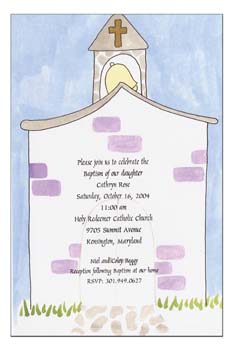 Please join us to celebrate the
Baptism of our daughter
Cathryn Rose
Saturday, October 16, 2004
11:00 am
Holy Redeemer Catholic Church
9705 Summit Avenue
Kensington, Maryland
Niel and Boggs
Reception following Baptism at our home
RSVP: 301.949.0627